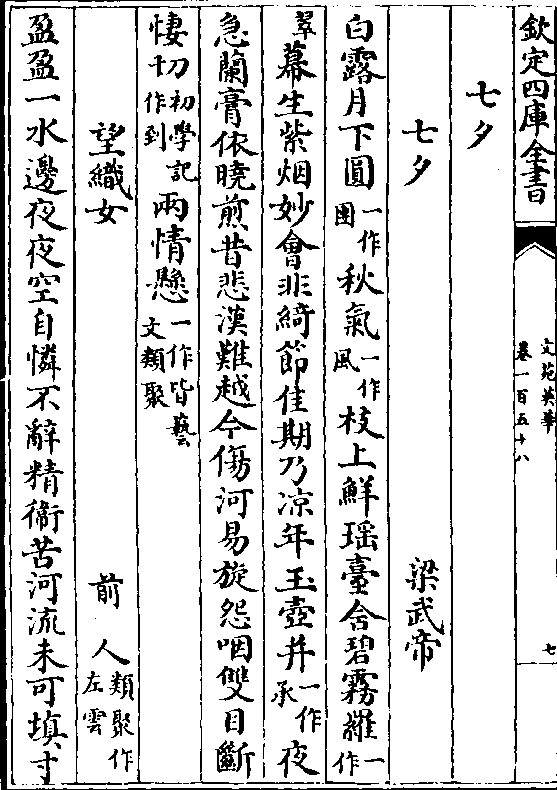 欽定四庫全書
文苑英華
卷一百五十八
七
七夕
七夕 梁武帝
白露月下圓一作團秋氣一作風枝上鮮瑶臺含碧霧羅一作
翠幕生紫烟妙會非綺節佳期乃凉年玉壺并一作承夜
急蘭膏依曉煎昔悲漢難越今傷河易旋怨咽雙目斷
悽切初學記作到兩情懸一作皆藝文類聚
望織女 前人類聚作左雲
盈盈一水邊夜夜空自憐不辭精衞苦河流未可填寸